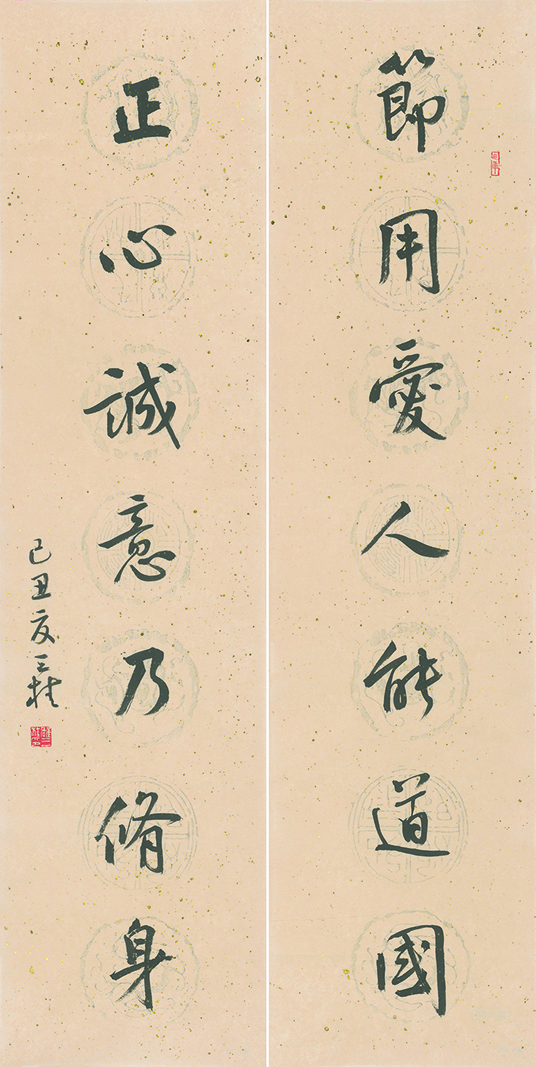 節用愛人能道國
正心誠意乃脩身
己丑夏三桂